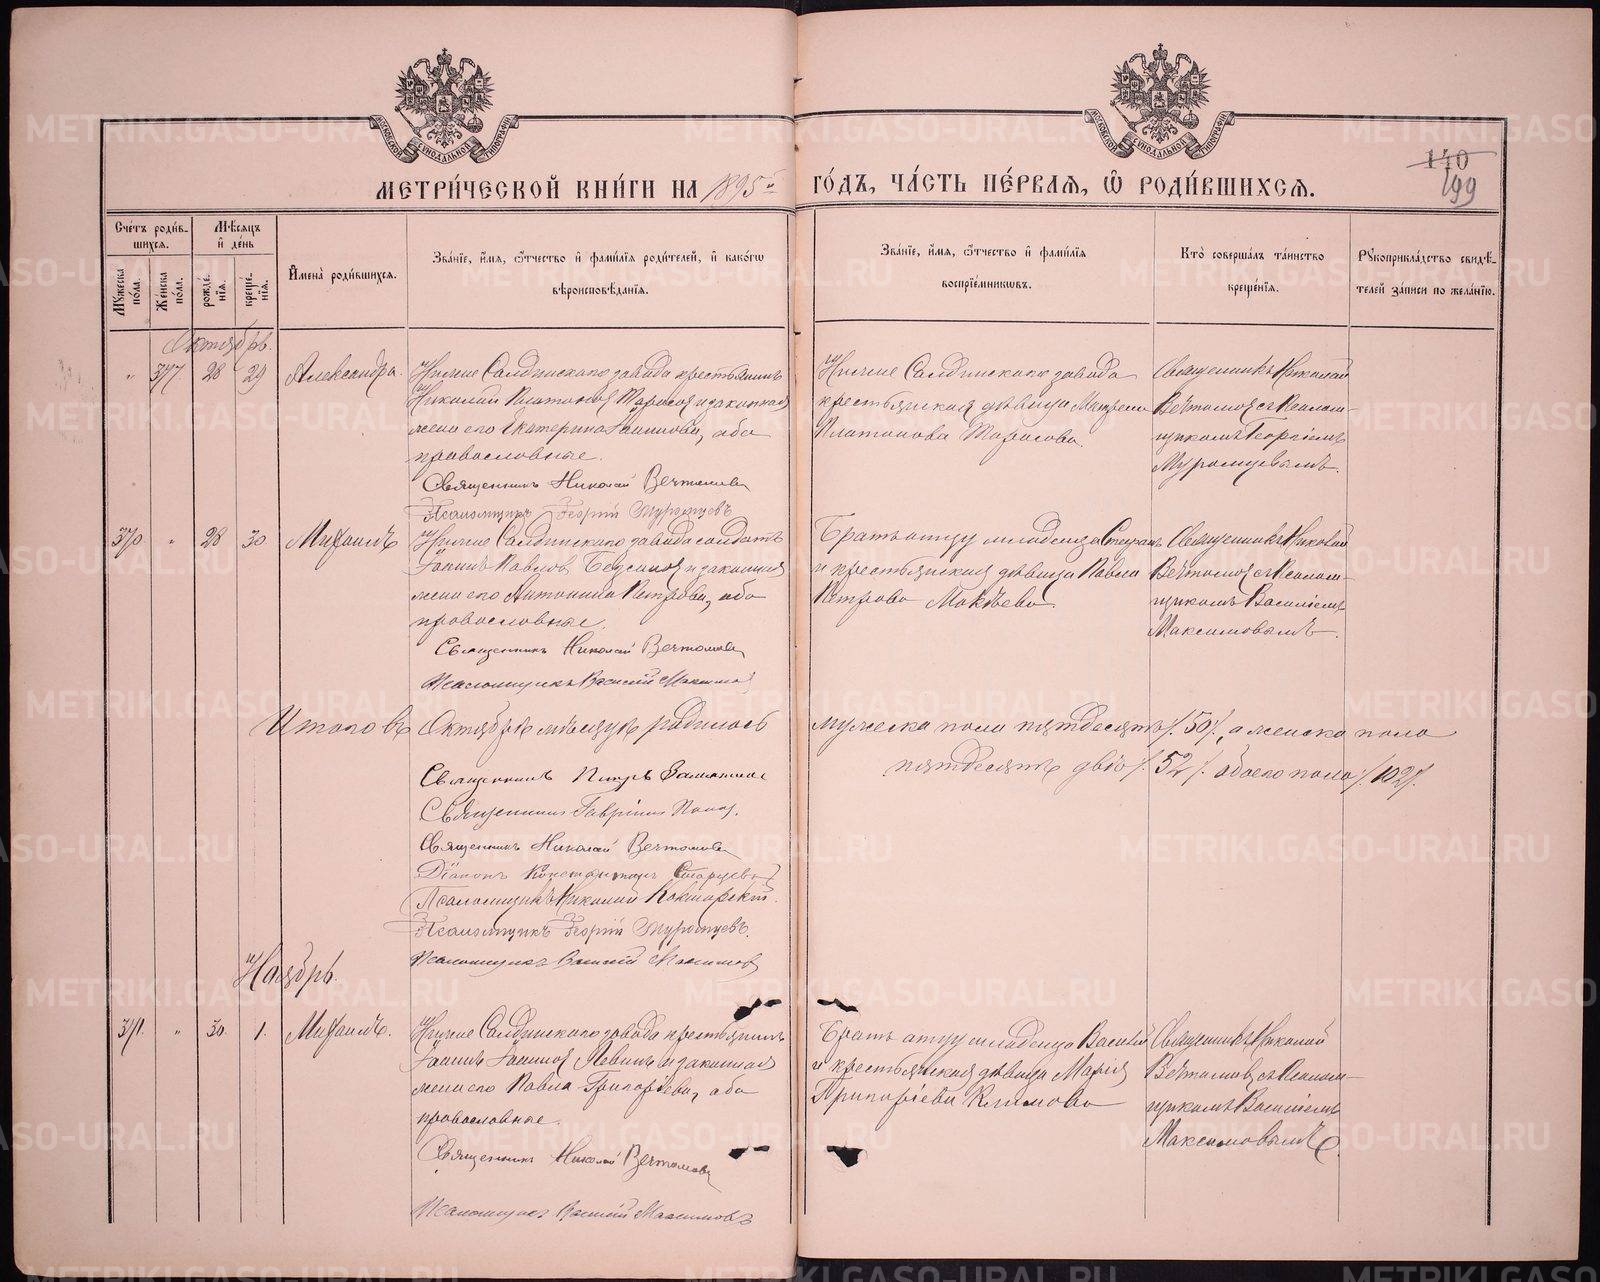 МЕТРИ́ЧЕСКОЙ КНИ́ГИ НА 1895й ГО́ДЪ, ЧА́СТЬ ПЕ́РВАѦ, Ѡ РОДИ́ВШИХСѦ.
МОСКОВСКОЙ СѴНОДАЛЬНОЙ ТИПОГРАФІИ
МОСКОВСКОЙ СѴНОДАЛЬНОЙ ТИПОГРАФІИ
140
199
Сче́тъ роди́в-
шихсѧ.
Мꙋ́жеска по́ла.
Же́нска по́ла.
Мѣ́сѧцъ
и҆ де́нь
рожде́-
нїѧ.
креще́-
нїѧ.
И҆мена̀ роди́вшихсѧ.
Зва́нїе, и҆́мѧ, ѻ҆́тчество и҆ фами́лїѧ роди́телей, и҆ како́гѡ
вѣроисповѣ́данїѧ.
Зва́нїе, и҆́мѧ, ѻ҆́тчество и҆ фами́лїѧ
воспрїе́мникѡвъ.
Кто̀ соверша́лъ та́инство
креще́нїѧ.
Рꙋкоприкла́дство свидѣ́-
телей за́писи по жела́нїю.
Октябрь.
" 377 28 29 Александра.
Нижне Салдинскаго завода крестьянинъ
Николай Платоновъ Тарасовъ и законная
жена его Екатерина Іоаннова, оба
православные.
Священникъ Николай Вечтомовъ
Псаломщикъ Георгій Муромцевъ
Нижне Салдинскаго завода
крестьянская дѣвица Матрена
Платонова Тарасова.
Священникъ Николай
Вечтомовъ съ Псалом-
щикомъ Георгіемъ
Муромцевымъ.
370 " 28 30 Михаилъ
Нижне Салдинскаго завода солдатъ
Іоаннъ Павловъ и законная
жена его Антонина Петрова, оба
православные.
Священникъ Николай Вечтомовъ
Псаломщикъ Василій Максимовъ
Братъ отцу младенца Стефанъ
и крестьянская дѣвица Павла
Петрова Мокѣева.
Священникъ Николай
Вечтомовъ съ Псалом-
щикомъ Василіемъ
Максимовымъ.
Итого въ Октябрѣ мѣсяцѣ родилось мужеска пола пятдесятъ /50/, а женска пола
пятдесятъ двѣ /52/ обоего пола /102/.
Священникъ Петръ
Священникъ Гавріилъ Поповъ.
Священникъ Николай Вечтомовъ
Діаконъ Константинъ Старцевъ
Псаломщикъ Николай
Псаломщикъ Георгій Муромцевъ.
Псаломщикъ Василій Максимовъ
Ноябрь.
371. " 30 1. Михаилъ.
Нижне Салдинскаго завода крестьянинъ
Іоаннъ Іоанновъ Левинъ и законная
жена его Павла Григорьева, оба
православные.
Священникъ Николай Вечтомовъ
Псаломщикъ Василій Максимовъ
Братъ отцу младенца Василій
и крестьянская дѣвица Марія
Григоріева Климова
Священникъ Николай
Вечтомовъ съ Псалом-
щикомъ Василіемъ
Максимовымъ.
METRIKI.GASO-URAL.RU